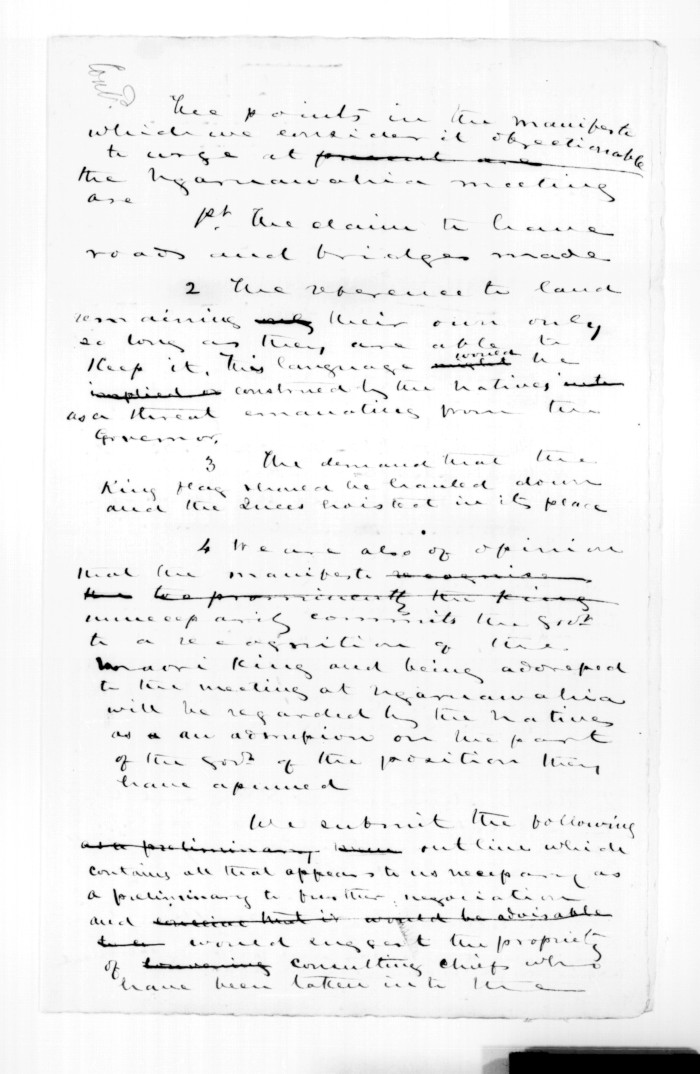 Conf<sup>d</sup>.
The points in the manifesto
which we consider it objectionable
to urge at ~~present are~~
the Ngaruawahia meeting
are
1st. The claim to have
roads and bridges made
2 The reference to land
remaining ~~only~~ their own only
so long as they are able to
keep it. This language ~~might~~ would be
~~implied as~~ construed by the Natives ~~into~~
as a threat emanating from the
Governor.
3 The demand that the
King flag should be hauled down
and the Queens hoisted in its place
4 We are also of opinion
that the manifesto ~~recognises~~
~~the too prominently the King~~
unnecessarily commits the Govt
to a recognition of the
Maori King and being addressed
to the meeting at Ngaruawahia
will be regarded by the Natives
as a an admission on the part
of the Govt of the position they
have assumed
We submit the following
~~as a preliminary~~ outline which
contains all that appears to us necessary as
a preliminary to further negociation
and ~~conceive that it would be advisable~~
would suggest the propriety
of consulting chiefs who
have been taken into the